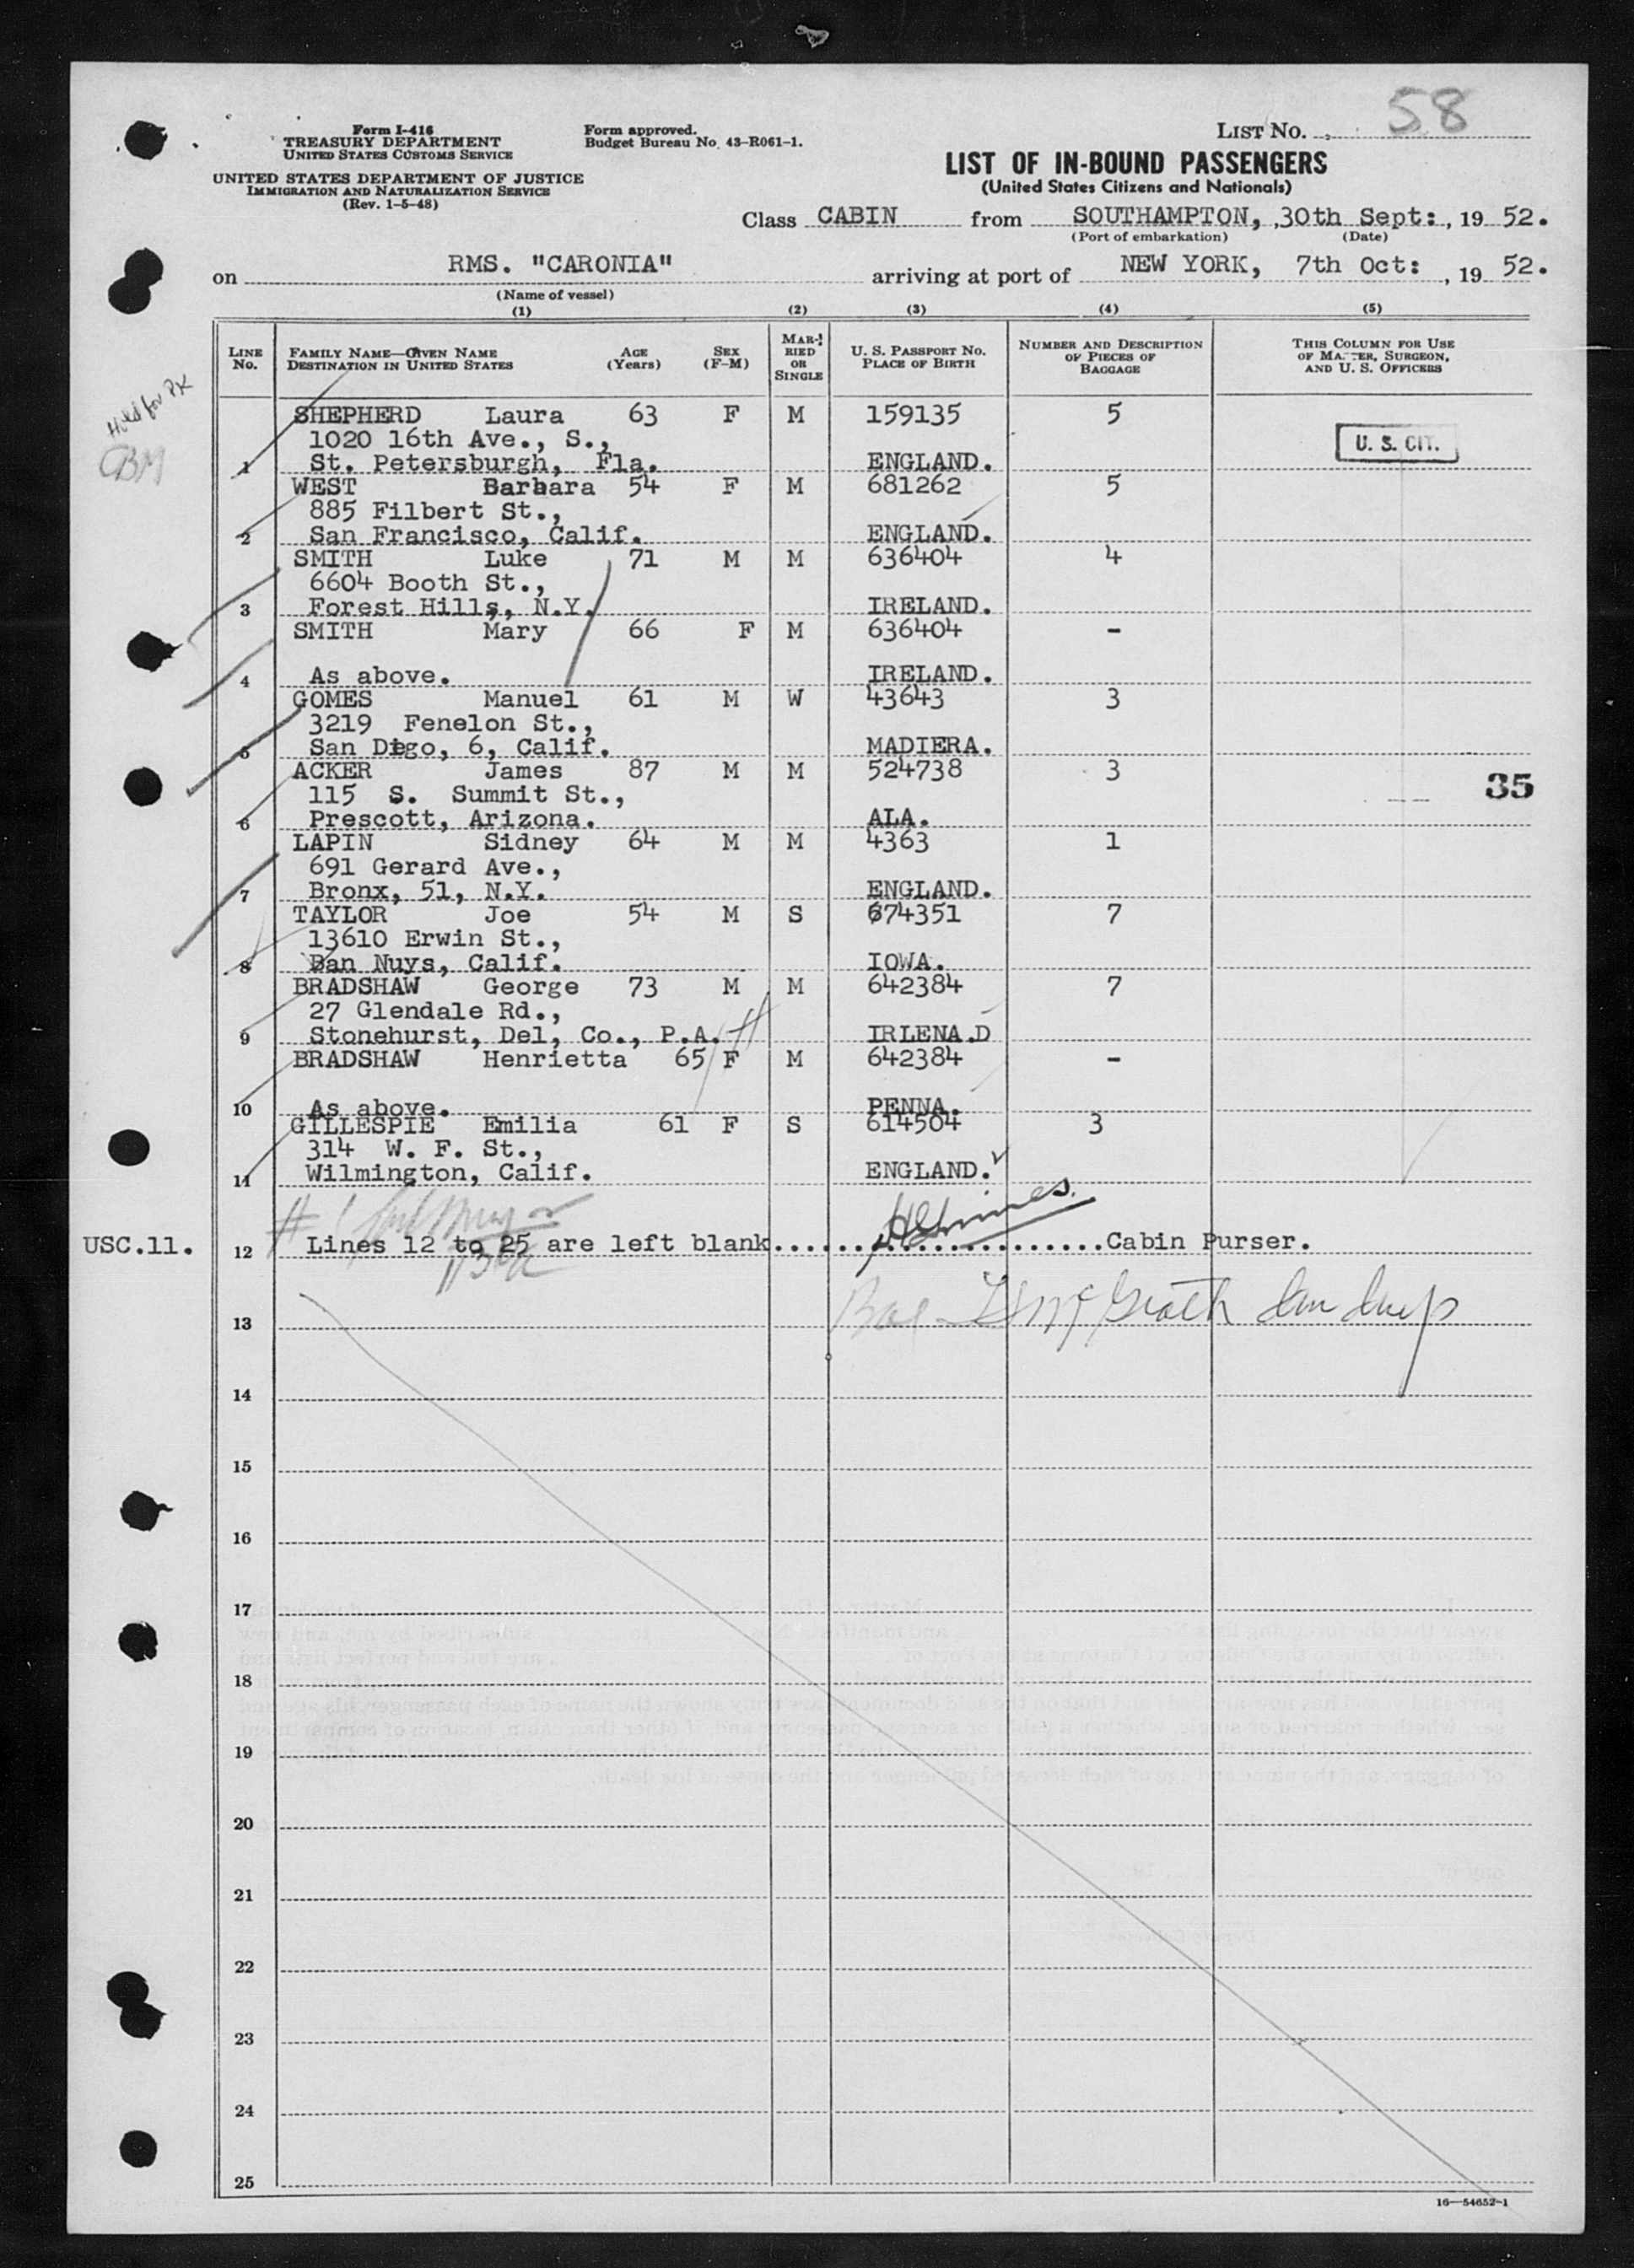 58
Form I-416
TREASURY DEPARTMENT
UNITED STATES CUSTOMS SERVICE
UNITED STATES DEPARTMENT OF JUSTICE
IMMIGRATION AND NATURALIZATION SERVICE
(Rev. 1-5-48)
Form approved.
Budget Bureau No. 43-R061-1.
LIST NO.
LIST OF IN-BOUND PASSENGERS
(United States Citizens and Nationals)
Class CABIN from SOUTHAMPTON, 30th Sept: , 19 52.
(Port of embarkation) (Date)
on RMS. "CARONIA" arriving at port of NEW YORK, 7th Oct: , 19 52.
(Name of vessel)
(1) (2) (3) (4) (5)
LINE No. FAMILY NAME—GIVEN NAME DESTINATION IN UNITED STATES AGE (Years) SEX (F-M) MARRIED OR SINGLE U. S. PASSPORT NO. PLACE OF BIRTH NUMBER AND DESCRIPTION OF PIECES OF BAGGAGE THIS COLUMN FOR USE OF MASTER, SURGEON, AND U. S. OFFICERS
Hold for PX
CBM
SHEPHERD Laura 63 F M 159135 5
1020 16th Ave., S.,
U. S. CIT.
1 St. Petersburgh, Fla. ENGLAND.
WEST Barbara 54 F M 681262 5
885 Filbert St.,
2 San Francisco, Calif. ENGLAND.
SMITH Luke 71 M M 636404 4
6604 Booth St.,
3 Forest Hills, N.Y. IRELAND.
SMITH Mary 66 F M 636404 -
4 As above. IRELAND.
GOMES Manuel 61 M W 43643 3
3219 Fenelon St.,
5 San Diego, 6, Calif. MADIERA.
ACKER James 87 M M 524738 3
115 S. Summit St.,
35
6 Prescott, Arizona. ALA.
LAPIN Sidney 64 M M 4363 1
691 Gerard Ave.,
7 Bronx, 51, N.Y. ENGLAND.
TAYLOR Joe 54 M S 674351 7
13610 Erwin St.,
8 Ban Nuys, Calif. IOWA.
BRADSHAW George 73 M M 642384 7
27 Glendale Rd.,
9 Stonehurst, Del, Co., P.A. IRLENA.D
BRADSHAW Henrietta 65 F M 642384 -
10 As above. PENNA.
GILLESPIE Emilia 61 F S 614504 3
314 W. F. St.,
11 Wilmington, Calif. ENGLAND.
USC.11. 12 Lines 12 to 25 are left blank......................Cabin Purser.
13
14
15
16
17
18
19
20
21
22
23
24
25
16—54652-1